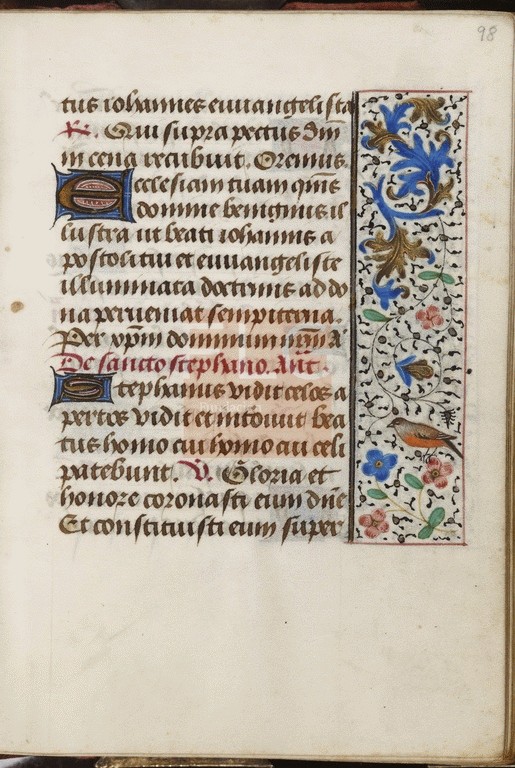 98
tus iohannes euuangelista
R. Qui supra pectus dni
in cena recubuit. Oremus.
Ecclesiam tuam qms
domine benignus il
lustra ut beati iohannis a
postoli tui et euuangeliste
illuminata doctrinis ad do
na perueniat sempiterna.
Per xpm dominum nrm A
De sancto stephano. Ant.
Stephanus vidit celos a
pertos vidit et introiuit bea
tus homo cui homo cui celi
patebunt. V. Gloria et
honore coronasti eum dne
Et constituisti eum super